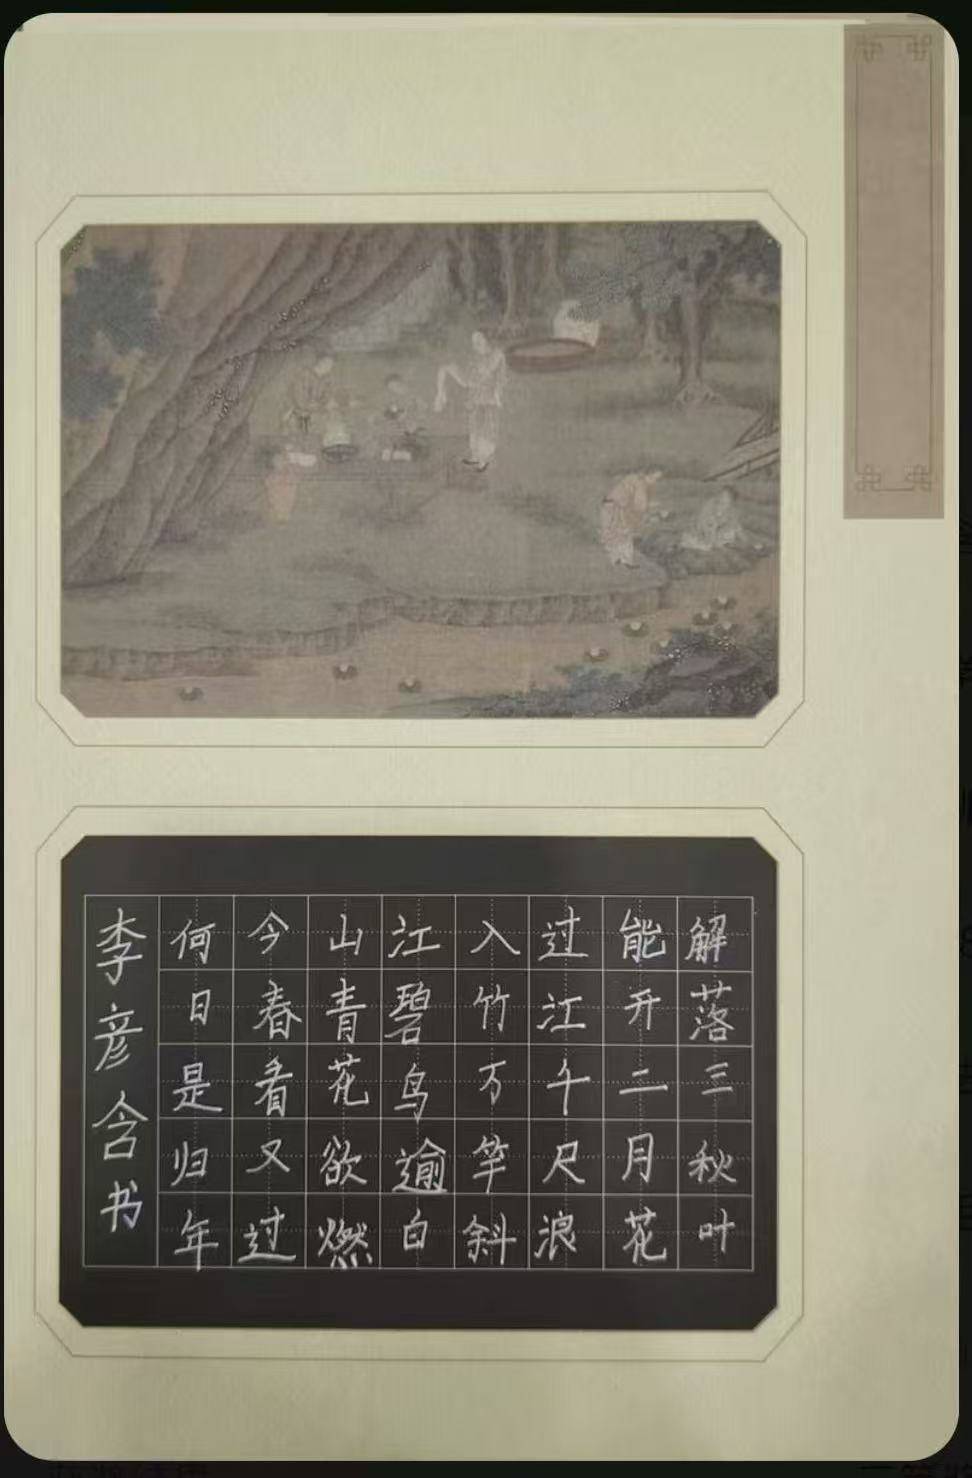 解落三秋叶
能开二月花
过江千尺浪
入竹万竿斜
江碧鸟逾白
山青花欲燃
今春看又过
何日是归年
李彦含书